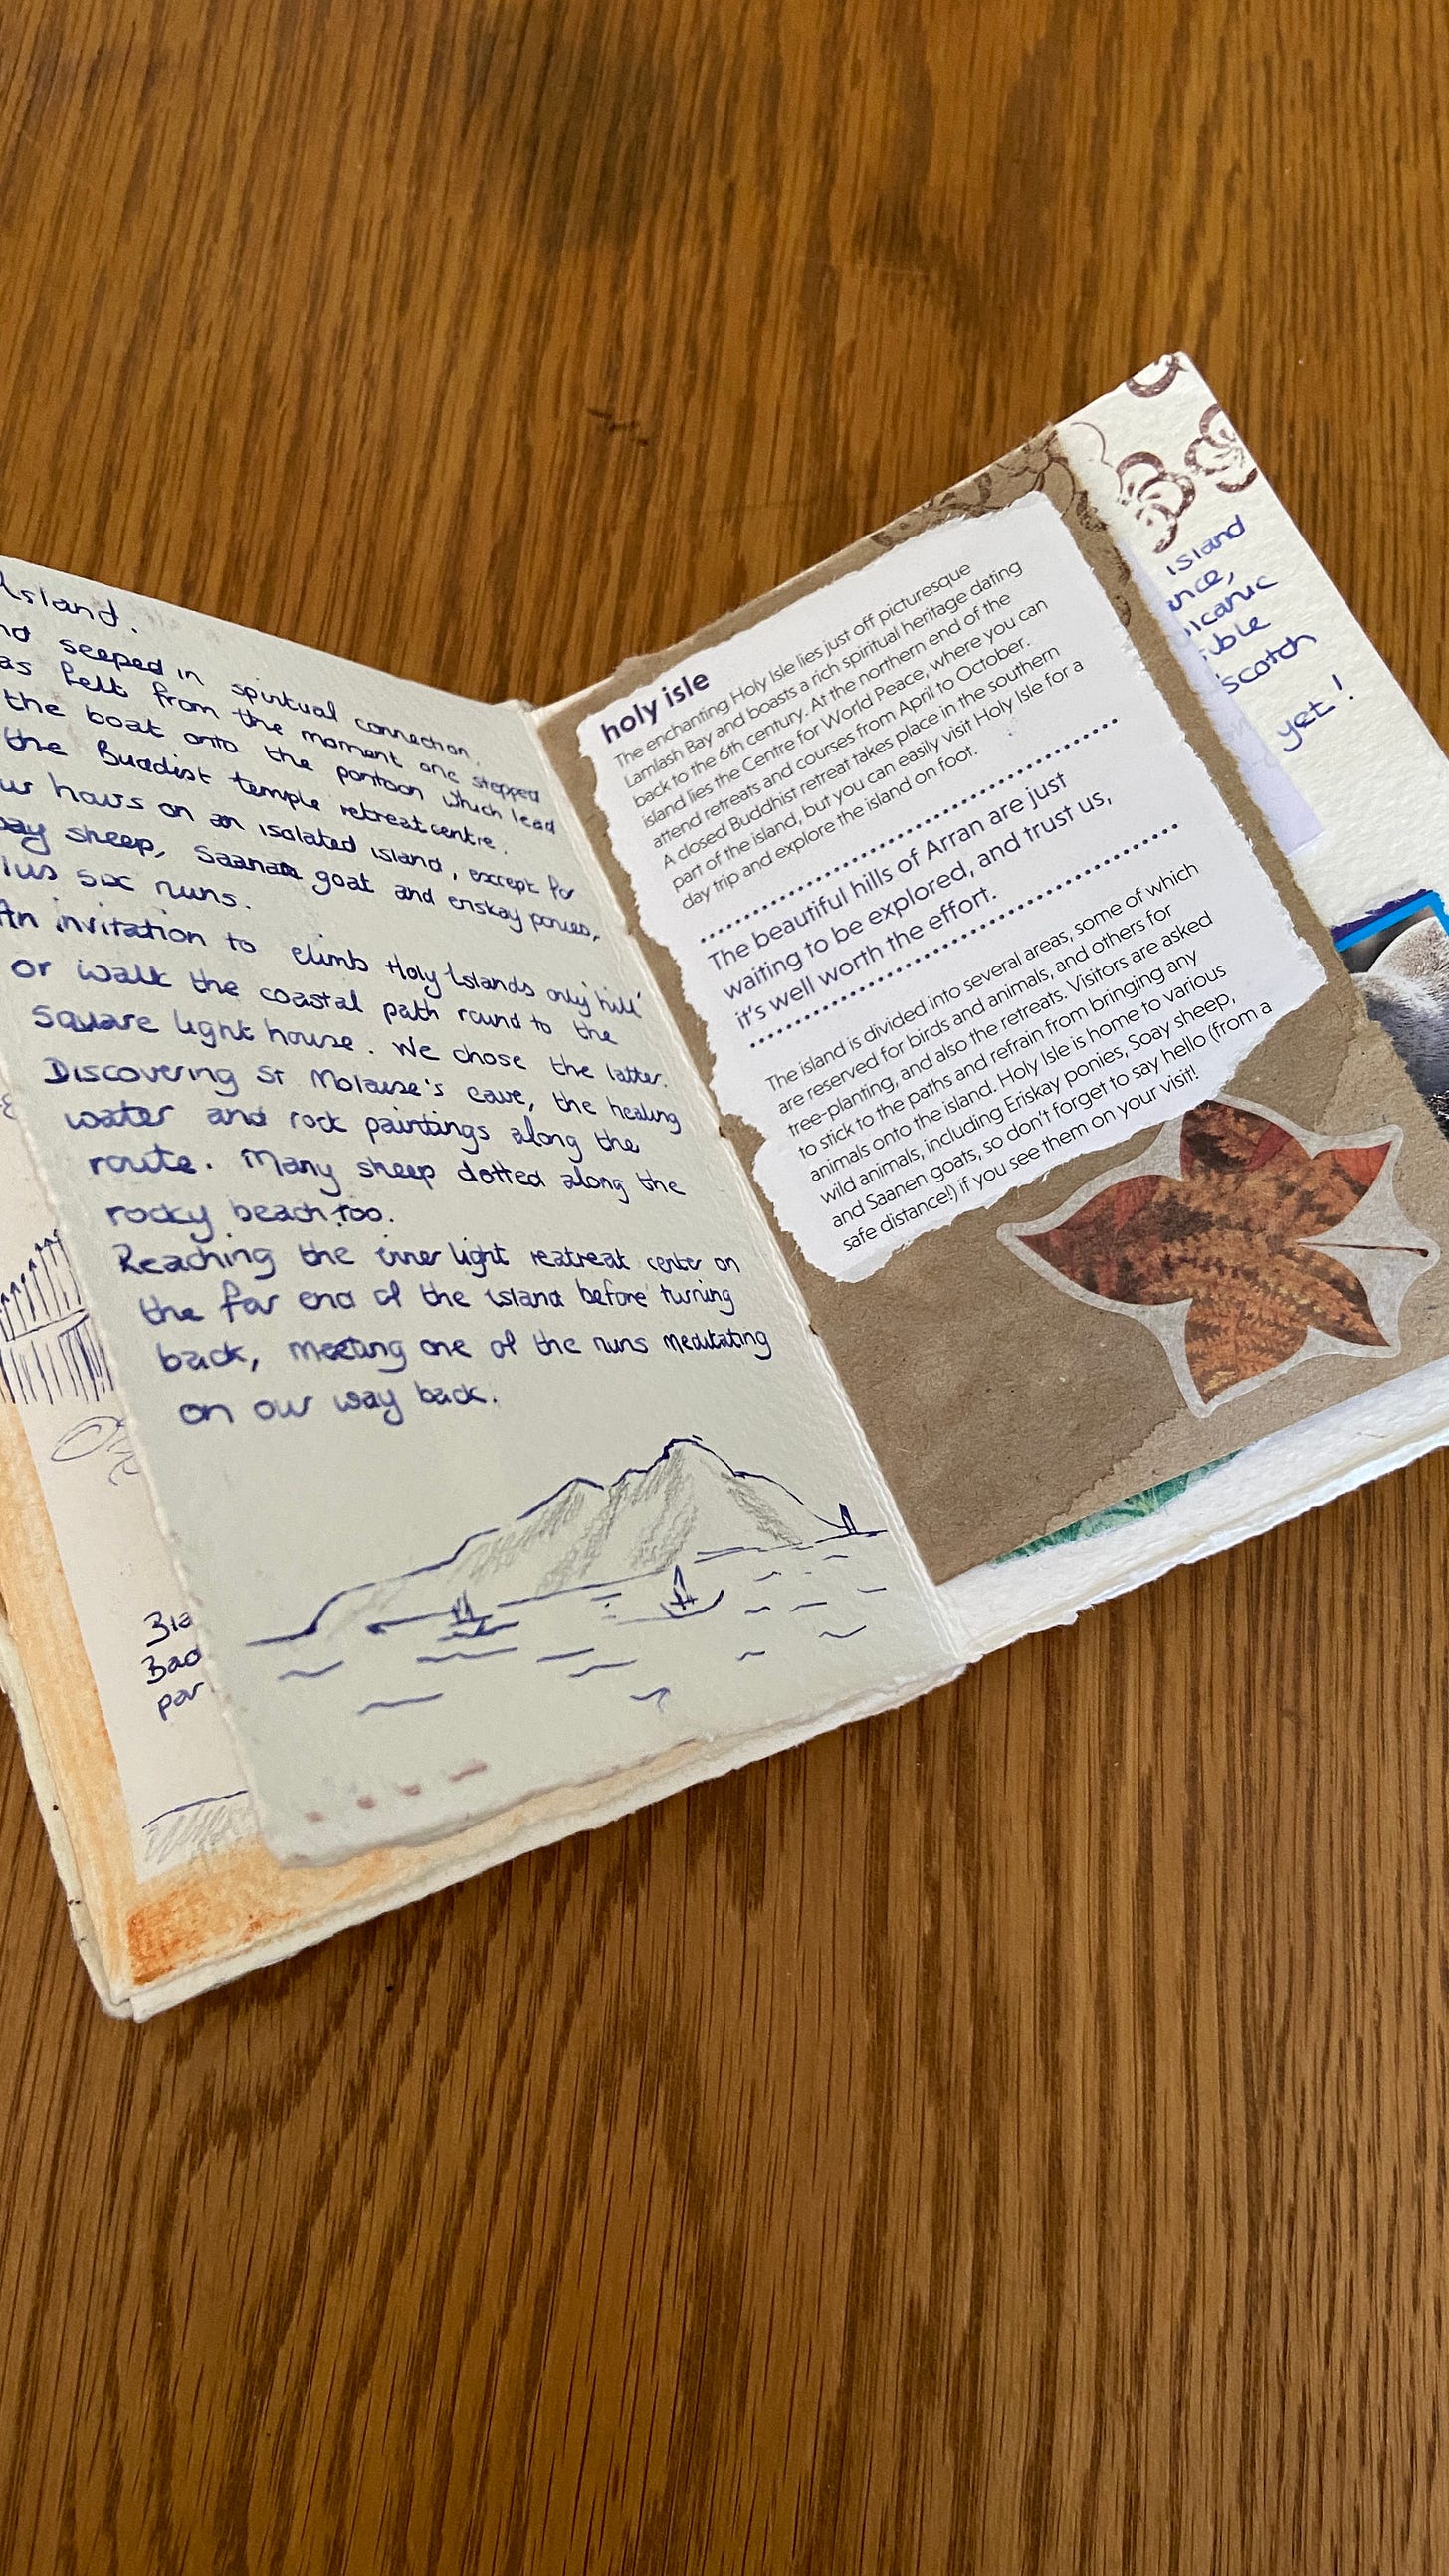 Island.
seeped in spiritual connection.
as felt from the moment one stepped
the boat onto the pontoon which lead
the Buddist temple retreat centre.
hours on an isolated island, except for
sheep, Saanan goat and eriskay ponies,
six nuns.
An invitation to climb Holy Islands only 'hill'
or walk the coastal path round to the
square light house. We chose the latter.
Discovering St Molaise's cave, the healing
water and rock paintings along the
route. Many sheep dotted along the
rocky beach too.
Reaching the inner light reatreat center on
the far end of the island before turning
back, meeting one of the nuns meditating
on our way back.
holy isle
The enchanting Holy Isle lies just off picturesque
Lamlash Bay and boasts a rich spiritual heritage dating
back to the 6th century. At the northern end of the
island lies the Centre for World Peace, where you can
attend retreats and courses from April to October.
A closed Buddhist retreat takes place in the southern
part of the island, but you can easily visit Holy Isle for a
day trip and explore the island on foot.
The beautiful hills of Arran are just
waiting to be explored, and trust us,
it's well worth the effort.
The island is divided into several areas, some of which
are reserved for birds and animals, and others for
tree-planting, and also the retreats. Visitors are asked
to stick to the paths and refrain from bringing any
animals onto the island. Holy Isle is home to various
wild animals, including Eriskay ponies, Soay sheep,
and Saanen goats, so don't forget to say hello (from a
safe distance!) if you see them on your visit!
island
scotch
yet!